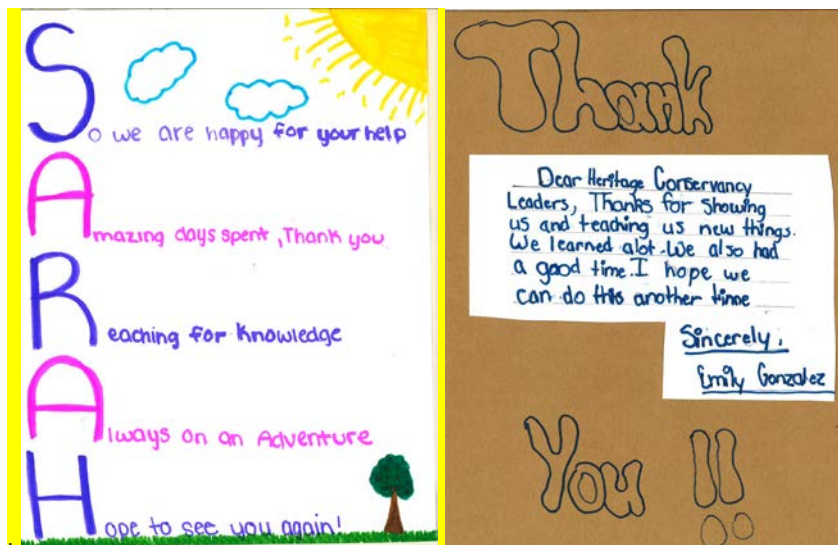 So we are happy for your help
Amazing days spent, Thank you
Reaching for Knowledge
Always on an Adventure
Hope to see you again!
Thank
Dear Heritage Conservancy
Leaders, Thanks for showing
us and teaching us new things.
We learned alot. We also had
a good time. I hope we
can do this another time
Sincerely,
Emily Gonzalez
You !!